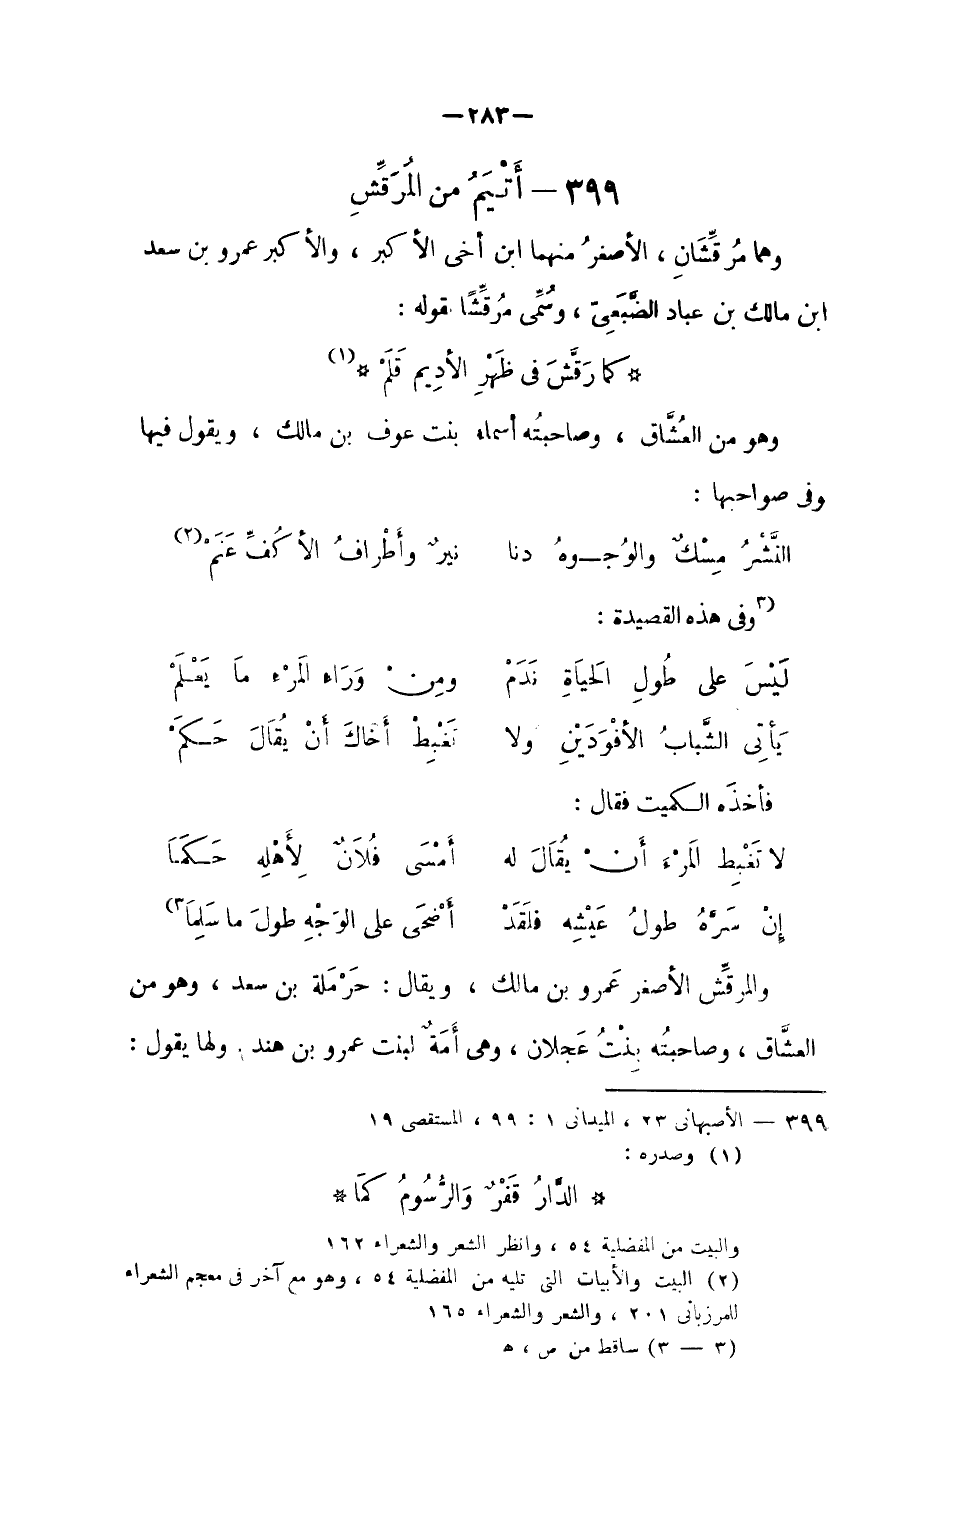 —٢٨٣—
٣٩٩ — أَتْيَمُ من المُرَقِّشِ
وهما مُرقِّشَانِ ، الأصغرُ منهما ابن أخى الأكبر ، والأكبر عمرو بن سعد
ابن مالك بن عباد الضُّبَعِىّ ، وسُمِّى مُرقِّشًا بقوله :
* كما رَقَّشَ فى ظَهْرِ الأدِيم قَلَمْ *(١)
وهو من العُشَّاق ، وصاحبتُه أسماء بنت عوف بن مالك ، ويقول فيها
وفى صواحبها :
النَّشْرُ مِسْكٌ والوُجـوهُ دنا نيرٌ وأَطْرافُ الأكُفِّ عَنَمْ(٢)
(٣وفى هذه القصيدة :
لَيْسَ على طُولِ الحَيَاةِ نَدَمْ ومِنْ وَرَاءِ المَرْءِ مَا يَعْلَمْ
يَأتِى الشَّبابُ الأَقْوَدَيْنِ ولا تَغْبِطْ أَخَاكَ أَنْ يُقَالَ حَـكَمْ
فأخذَه الـكميت فقال :
لا تَغْبِط المَرْءَ أَنْ يُقَالَ له أَمْسَى فُلاَنٌ لِأَهْلِهِ حَـكَمَا
إِنْ سَرَّهُ طولُ عَيْشِه فلَقَدْ أَضْحَى على الوَجْهِ طولَ ما سَلِمَا٣)
والمرقِّش الأصغر عَمرو بن مالك ، ويقال : حَرْمَلة بن سعد ، وهو من
العشَّاق ، وصاحبتُه بِنْتُ عَجلان ، وهى أَمَةٌ لبنت عمرو بن هند . ولها يقول :
٣٩٩ — الأصبهانى ٢٣ ، الميدانى ١ : ٩٩ ، المستقصى ١٩
(١) وصدره :
* الدَّارُ قَفْرٌ وَالرُّسُومُ كَمَا *
والبيت من المفضلية ٥٤ ، وانظر الشعر والشعراء ١٦٢
(٢) البيت والأبيات التى تليه من المفضلية ٥٤ ، وهو مع آخر فى معجم الشعراء
للمرزبانى ٢٠١ ، والشعر والشعراء ١٦٥
(٣ — ٣) ساقط من ص ، ه